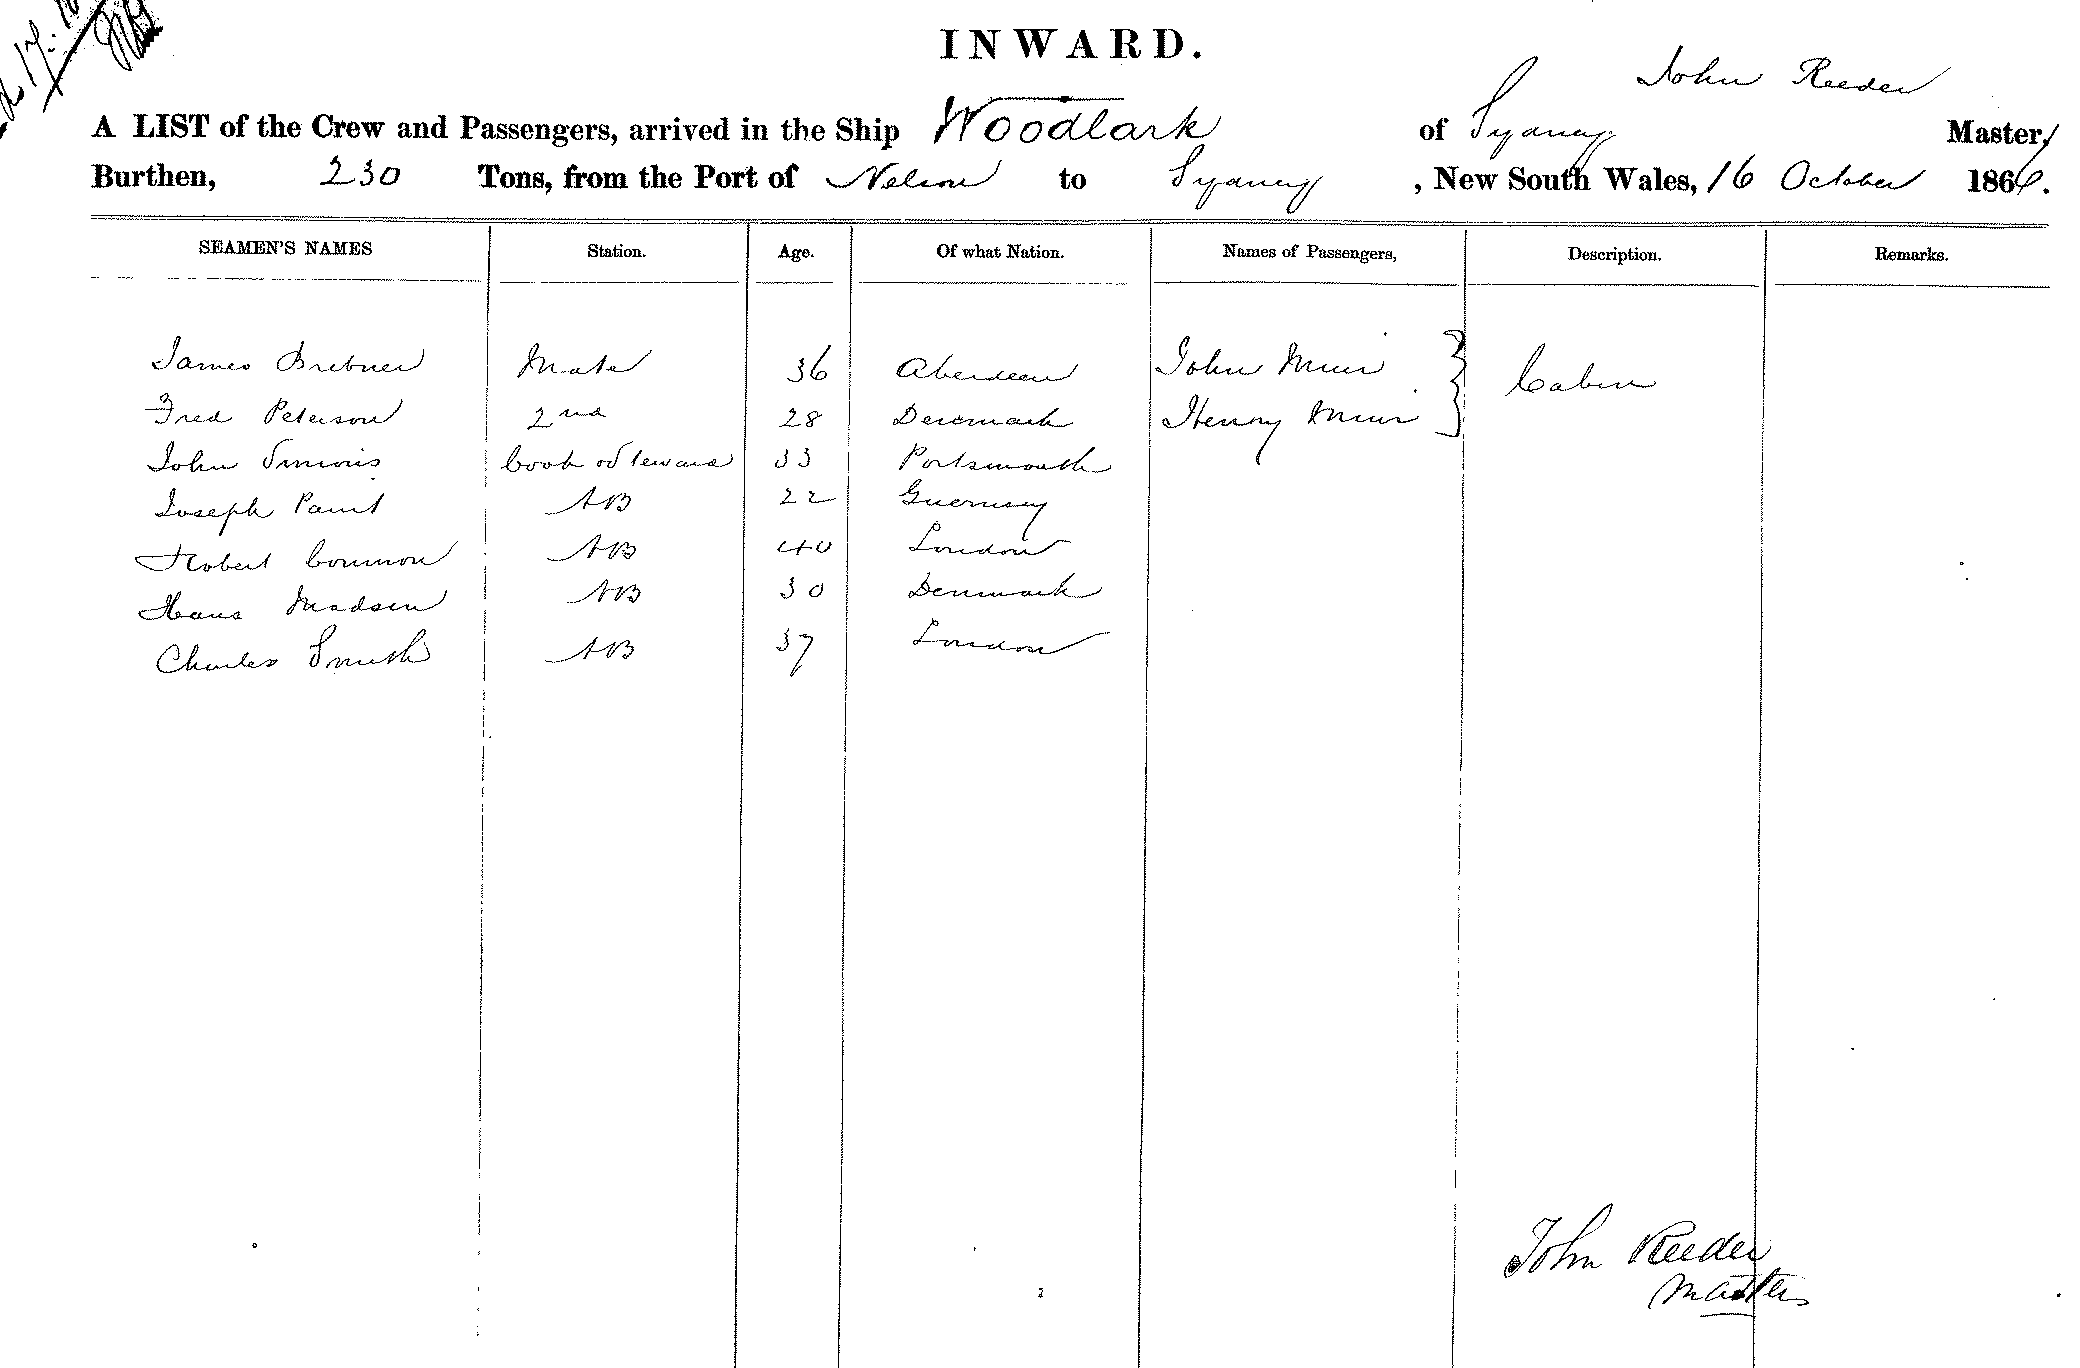 INWARD.
John Reeder
A LIST of the Crew and Passengers, arrived in the Ship Woodlark of Sydney Master,
Burthen, 230 Tons, from the Port of Nelson to Sydney, New South Wales, 16 October 1866.
SEAMEN'S NAMES Station. Age. Of what Nation. Names of Passengers, Description. Remarks.
James Brebner Mate 36 Aberdeen John Muir Cabin
Fred Peterson 2nd 28 Denmark Henry Muir
John Cook & Steward 33 Portsmouth
Joseph AB 22 Guernsey
Robert Common AB 40 London
Hans Madsen AB 30 Denmark
Charles Smith AB 37 London
John Reeder
Master